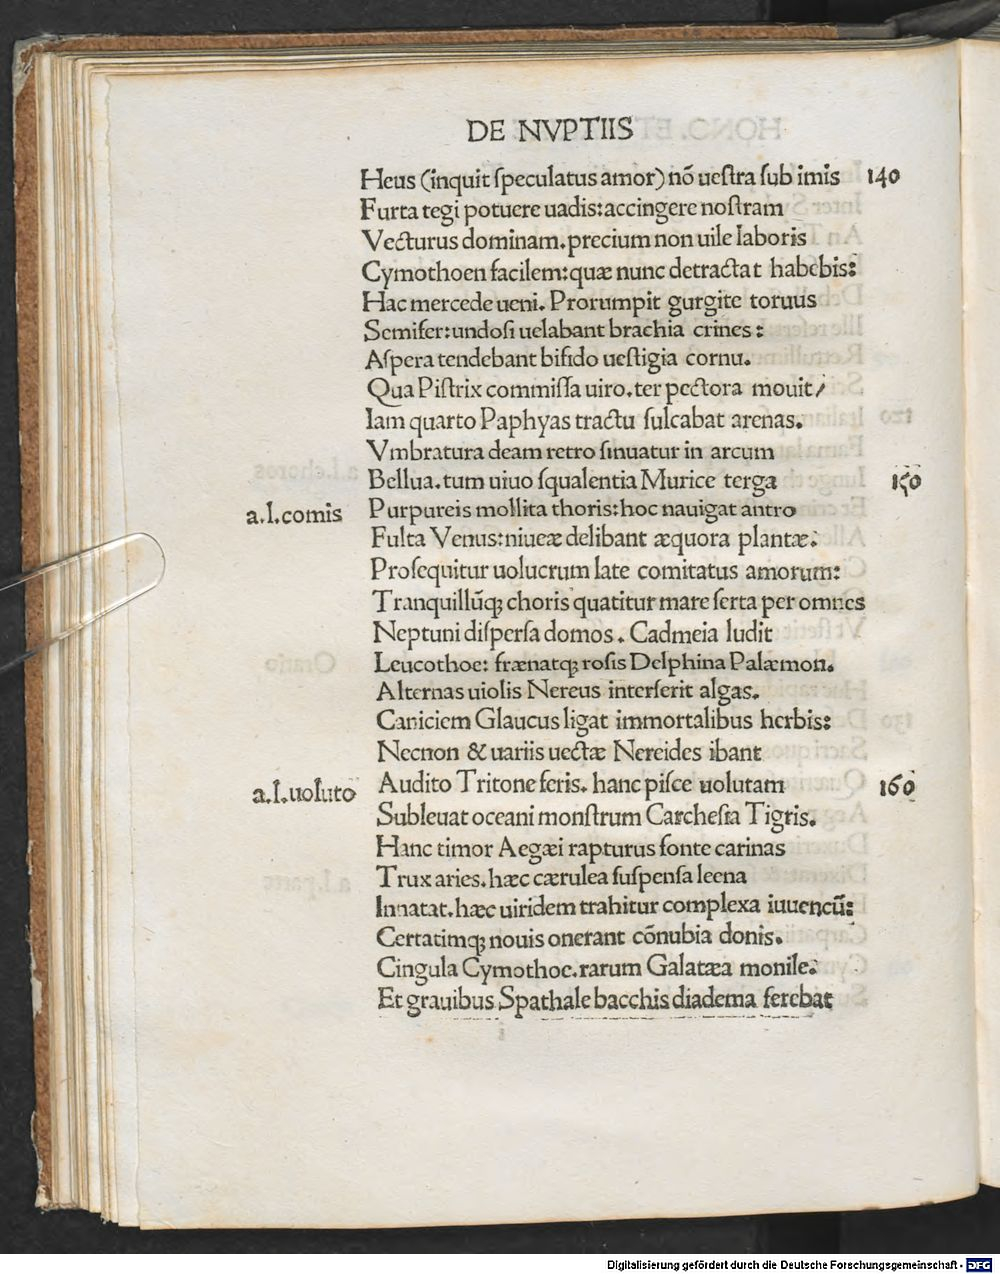 DE NVPTIIS
Heus (inquit ſpeculatus amor) nõ ueſtra ſub imis 140
Furta tegi potuere uadis:accingere noſtram
Vecturus dominam.precium non uile laboris
Cymothoen facilem:quæ nunc detractat habebis:
Hac mercede ueni. Prorumpit gurgite toruus
Semifer:undoſi uelabant brachia crines:
Aſpera tendebant bifido ueſtigia cornu.
Qua Piſtrix commiſſa uiro.ter pectora mouit/
Iam quarto Paphyas tractu ſulcabat arenas.
Vmbratura deam retro ſinuatur in arcum
Bellua.tum uiuo ſqualentia Murice terga 150
a.l.comis Purpureis mollita thoris:hoc nauigat antro
Fulta Venus:niueæ delibant æquora plantæ:
Proſequitur uolucrum late comitatus amorum:
Tranquillũq; choris quatitur mare ſerta per omnes
Neptuni diſperſa domos. Cadmeia ludit
Leucothoe: frænatq; roſis Delphina Palæmon.
Alternas uiolis Nereus interſerit algas.
Caniciem Glaucus ligat immortalibus herbis:
Necnon & uariis uectæ Nereides ibant
a.l.uoluto Audito Tritone feris. hanc piſce uolutam 160
Subleuat oceani monſtrum Carcheſia Tigris.
Hanc timor Aegæi rapturus fonte carinas
Trux aries.hæc cærulea ſuſpenſa leena
Innatat.hæc uiridem trahitur complexa iuuencũ:
Certatimq; nouis onerant cõnubia donis.
Cingula Cymothoe.rarum Galatæa monile:
Et grauibus Spathale bacchis diadema ferebat
Digitalisierung gefördert durch die Deutsche Forschungsgemeinschaft - DFG